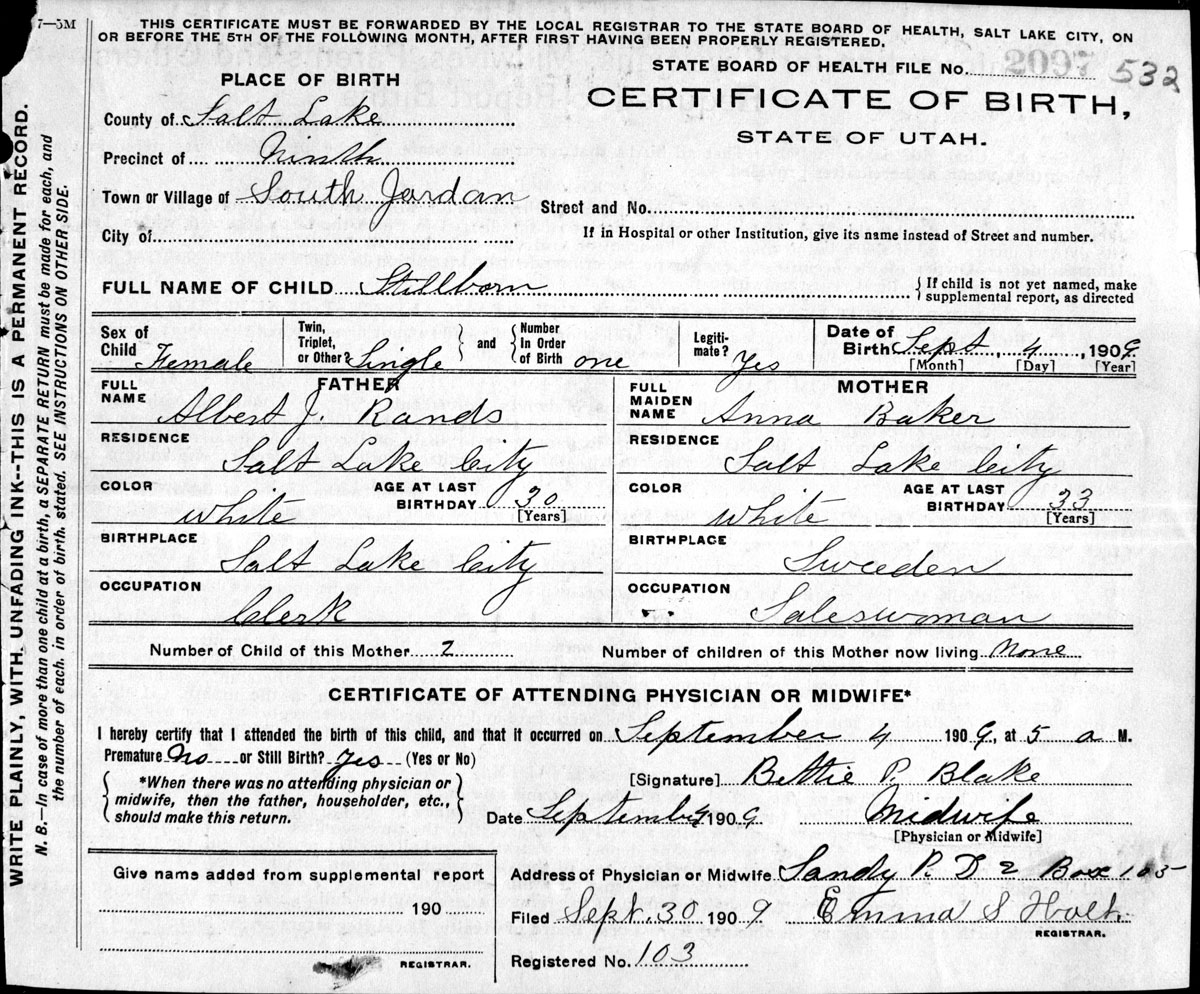 7—5M
THIS CERTIFICATE MUST BE FORWARDED BY THE LOCAL REGISTRAR TO THE STATE BOARD OF HEALTH, SALT LAKE CITY, ON
OR BEFORE THE 5TH OF THE FOLLOWING MONTH, AFTER FIRST HAVING BEEN PROPERLY REGISTERED.
STATE BOARD OF HEALTH FILE No. 2097 532
PLACE OF BIRTH
CERTIFICATE OF BIRTH,
STATE OF UTAH.
County of Salt Lake
Precinct of Ninth
Town or Village of South Jordan
Street and No.
City of
If in Hospital or other Institution, give its name instead of Street and number.
FULL NAME OF CHILD Stillborn { If child is not yet named, make
supplemental report, as directed
Sex of Child Female Twin, Triplet, or Other? Single } and { Number In Order of Birth one Legiti-mate? Yes Date of Birth Sept 4, 1909
[Month] [Day] [Year]
FATHER MOTHER
FULL NAME Albert J. Rands FULL MAIDEN NAME Anna Baker
RESIDENCE Salt Lake City RESIDENCE Salt Lake City
COLOR White AGE AT LAST BIRTHDAY 30 [Years] COLOR White AGE AT LAST BIRTHDAY 33 [Years]
BIRTHPLACE Salt Lake City BIRTHPLACE Sweeden
OCCUPATION Clerk OCCUPATION Saleswoman
Number of Child of this Mother 2 Number of children of this Mother now living None
CERTIFICATE OF ATTENDING PHYSICIAN OR MIDWIFE*
I hereby certify that I attended the birth of this child, and that it occurred on September 4 1909, at 5 a M.
Premature No or Still Birth? Yes (Yes or No)
{ *When there was no attending physician or
midwife, then the father, householder, etc.,
should make this return. }
[Signature] Bettie P. Blake
Date September 4 1909. Midwife
[Physician or Midwife]
Give name added from supplemental report
190
REGISTRAR.
Address of Physician or Midwife Sandy R. D 2 Box 105
Filed Sept. 30 1909 Emma S Holt.
REGISTRAR.
Registered No. 103
WRITE PLAINLY, WITH UNFADING INK--THIS IS A PERMANENT RECORD.
N. B.—In case of more than one child at a birth, a SEPARATE RETURN must be made for each, and
the number of each, in order of birth, stated. SEE INSTRUCTIONS ON OTHER SIDE.